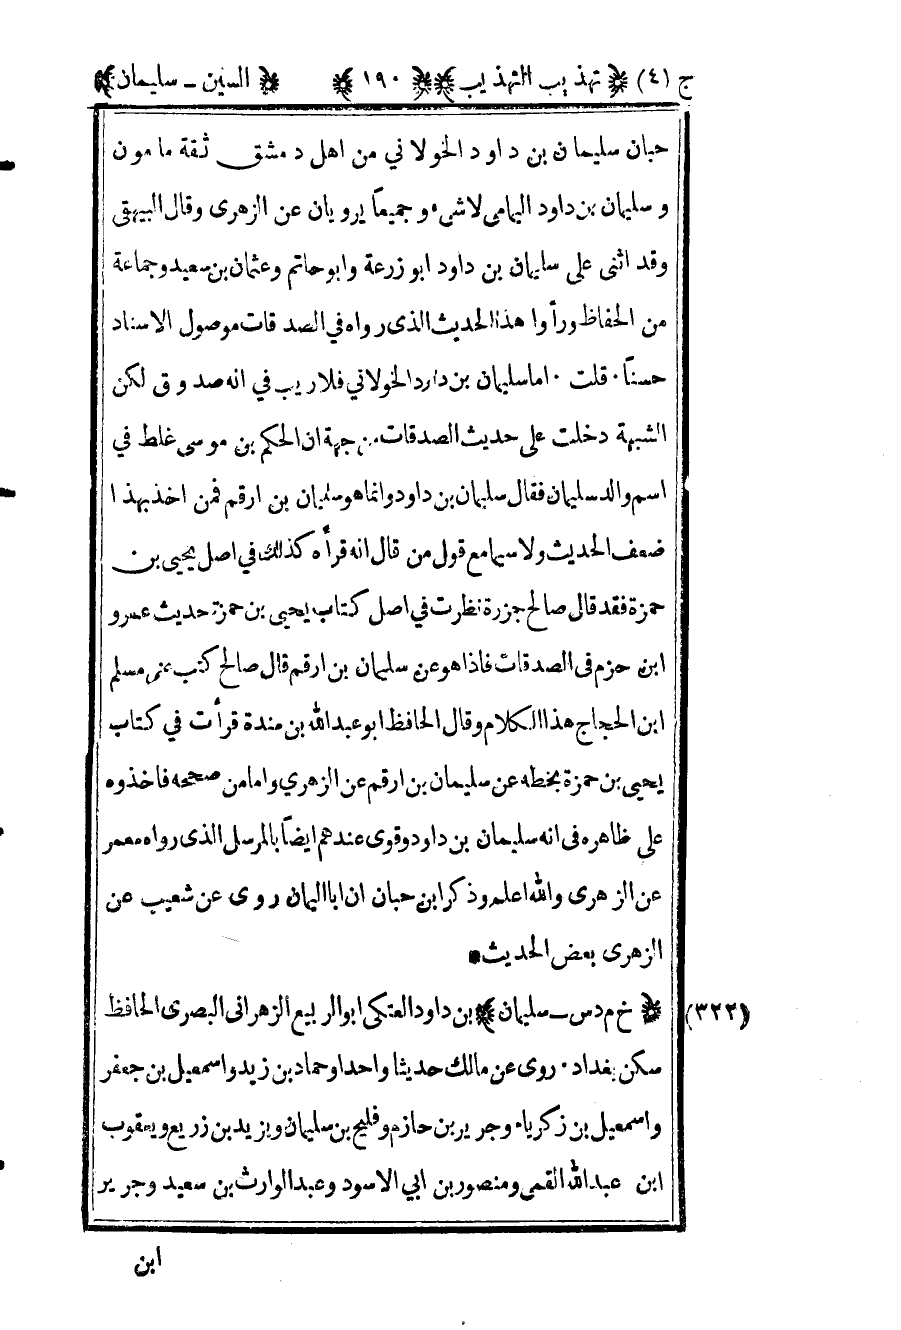 ج (٤) ﴿ تهذيب التهذيب ﴾ ﴿ ١٩٠ ﴾ ﴿ السين ـ سليمان ﴾
حبان سليمان بن داود الخولاني من اهل دمشق ثقة مامون
وسليمان بن داود اليمامى لاشىء وجميعاً يرويان عن الزهرى وقال البيهقى
وقد اثنى على سليمان بن داود ابوزرعة وابوحاتم وعثمان بن سعيد وجماعة
من الحفاظ ورأوا هذا الحديث الذى رواه في الصدقات موصول الاسناد
حسناً ٠ قلت ٠ اما سليمان بن دارد الخولاني فلاريب في انه صدوق لكن
الشبهة دخلت على حديث الصدقات من جهة ان الحكم بن موسى غلط في
اسم والد سليمان فقال سليمان بن داود وانما هو سليمان بن ارقم فمن اخذ بهذا
ضعف الحديث ولاسيما مع قول من قال انه قرأه كذلك في اصل يحيى بن
حمزة فقد قال صالح جزرة نظرت في اصل كتاب يحيى بن حمزة حديث عمرو
ابن حزم فى الصدقات فاذا هو عن سليمان بن ارقم قال صالح كتب عنى مسلم
ابن الحجاج هذا الكلام وقال الحافظ ابو عبدالله بن مندة قرأت في كتاب
يحيى بن حمزة بخطه عن سليمان بن ارقم عن الزهري واما من صححه فاخذوه
على ظاهره فى انه سليمان بن داود وقوى عندهم ايضاً بالمرسل الذى رواه معمر
عن الزهرى والله اعلم وذكر ابن حبان ان اباليمان روى عن شعيب عن
الزهرى بعض الحديث •
(٣٢٢) ﴿ خ م د س ـ سليمان ﴾ بن داود العتكى ابو الربيع الزهرانى البصرى الحافظ
سكن بغداد ٠ روى عن مالك حديثا واحدا وحماد بن زيد واسمعيل بن جعفر
واسمعيل بن زكرياء وجرير بن حازم وفليح بن سليمان ويزيد بن زريع ويعقوب
ابن عبدالله القمى ومنصور بن ابي الاسود وعبدالوارث بن سعيد وجرير
ابن